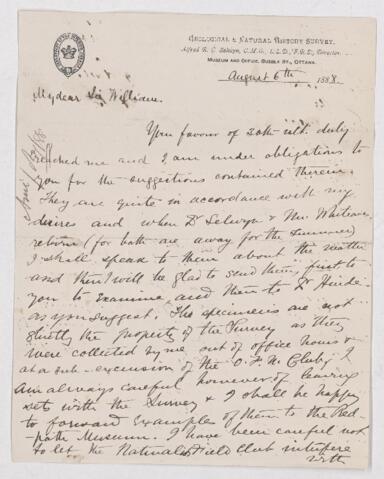 GEOLOGICAL & NATURAL HISTORY SURVEY.
Alfred R. C. Selwyn, C.M.G., L.L.D., F.R.S., Director.
MUSEUM AND OFFICE, SUSSEX ST., OTTAWA.
August 6th 1888.
My dear Sir William.
Your favour of 20th ult. duly
reached me and I am under obligations to
you for the suggestions contained therein.
They are quite in accordance with my
desires and when Dr Selwyn & Mr. Whiteaves
return (for both are away for the summer)
I shall speak to them about the matter
and then I will be glad to send them first to
you to examine and then to Dr Hinde
as you suggest. The specimens are not
strictly the property of the Survey as they
were collected by me out of office hours &
at a sub-excursion of the O. F. N. Club; I
am always careful however of leaving
sets with the Survey & I shall be happy
to forward examples of them to the Red-
path Museum. I have been careful not
to let the Naturalists Field Club interfere
with